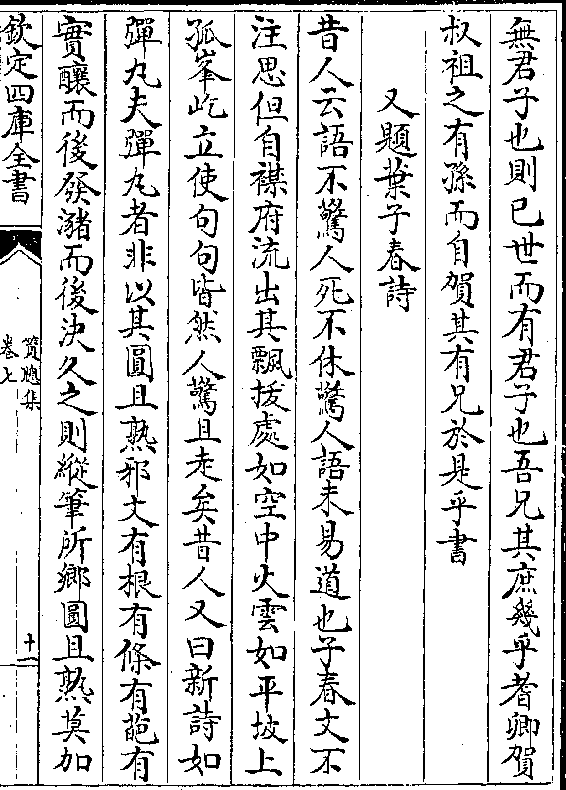 無君子也則已世而有君子也吾兄其庶幾乎耆卿賀
叔祖之有孫而自賀其有兄於是乎書
又題葉子春詩
昔人云語不驚人死不休驚人語未易道也子春文不
注思但自襟府流出其飄拔處如空中火雲如平坡上
孤峯屹立使句句皆然人驚且走矣昔人又曰新詩如
彈丸夫彈丸者非以其圓且熟邪文有根有條有葩有
實釀而後發瀦而後決久之則縱筆所鄉圓且熟莫加
欽定四庫全書
篔牕集
卷七
十二